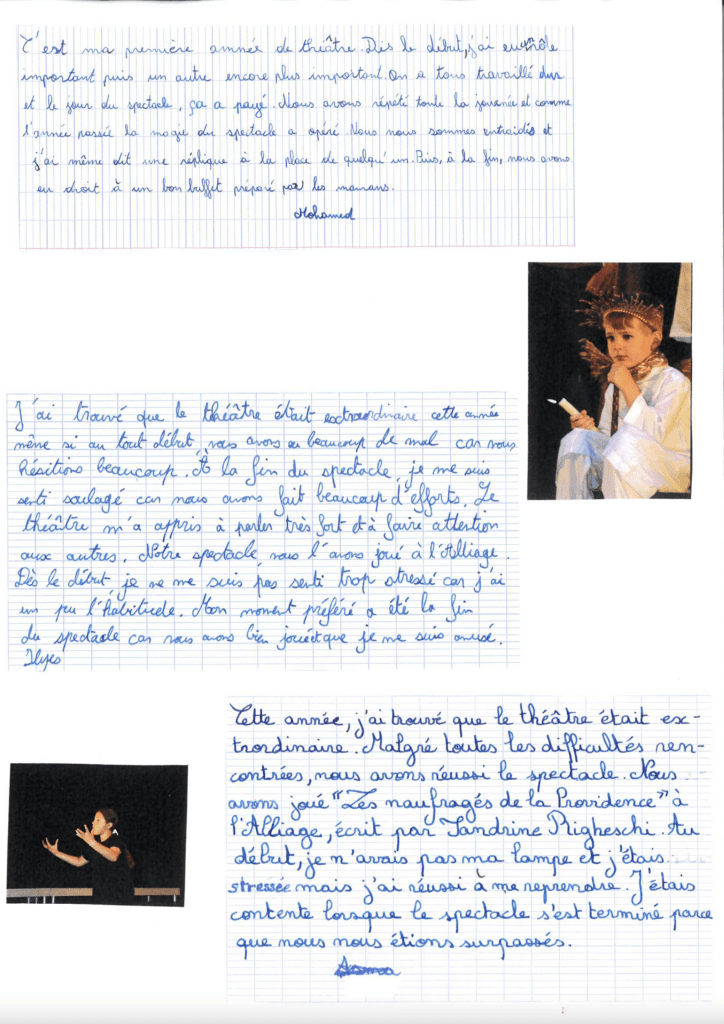 C'est ma première année de théâtre. Dès le début, j'ai eu un rôle
important puis un autre encore plus important. On a tous travaillé dur
et le jour du spectacle, ça a payé. Nous avons répété toute la journée et comme
l'année passée la magie du spectacle a opéré. Nous nous sommes entraidés et
j'ai même dit une réplique à la place de quelqu'un. Puis, à la fin, nous avons
eu droit à un bon buffet préparé par les mamans.
Mohamed
J'ai trouvé que le théâtre était extraordinaire cette année
même si au tout début, nous avons eu beaucoup de mal car nous
hésitions beaucoup. À la fin du spectacle, je me suis
senti soulagé car nous avons fait beaucoup d'efforts. Le
théâtre m'a appris à parler très fort et à faire attention
aux autres. Notre spectacle, nous l'avons joué à l'Alliage.
Dès le début, je ne me suis pas senti trop stressé car j'ai
un peu l'habitude. Mon moment préféré a été la fin
du spectacle car nous avons bien joué et que je me suis amusé.
Ilyes
Cette année, j'ai trouvé que le théâtre était ex-
traordinaire. Malgré toutes les difficultés ren-
contrées, nous avons réussi le spectacle. Nous
avons joué "Les naufragés de la Providence" à
l'Alliage, écrit par Sandrine Righeschi. Au
début, je n'avais pas ma lampe et j'étais
stressée mais j'ai réussi à me reprendre. J'étais
contente lorsque le spectacle s'est terminé parce
que nous nous étions surpassés.